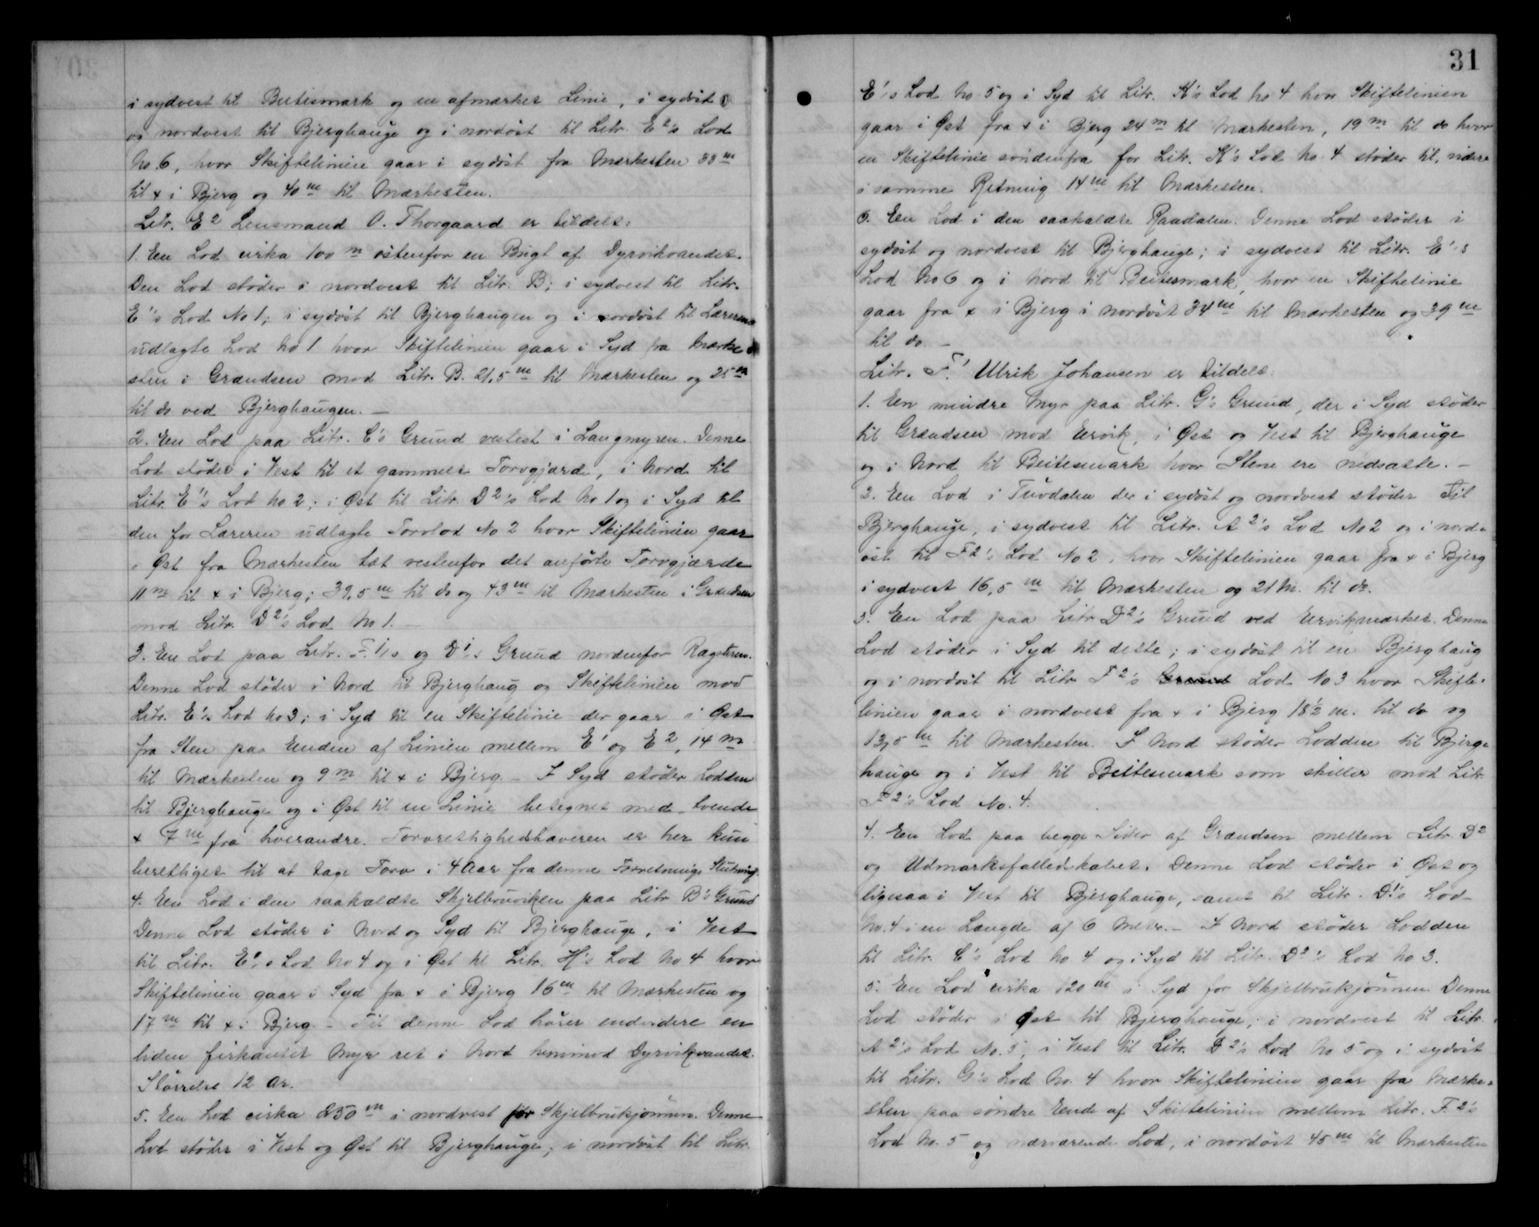 i sydvest til Beitesmark og en afmærket Linie, i sydøst
og nordvest til Bjerghauge og i nordøst til Litr. E²'s Lod
No. 6, hvor Skiftelinien gaar i sydøst fra Mærkesten 33 m
til x i Bjerg og 40 m til Mærkesten.
Litr. E² Lensmand O. Thorgaard er tildelt:
1. En Lod cirka 100 m østenfor en Bugt af Dyrvikvandet.
Den Lod støder i nordvest til Litr. B; i sydvest til Litr.
E¹'s Lod No 1; i sydøst til Bjerghaugen og i nordøst til Læreren
udlagte Lod No 1 hvor Skiftelinien gaar i Syd fra Mærke
sten i Grændsen mod Litr. B. 21,5 m til Mærkesten og 25 m
til do ved Bjerghaugen. —
2. En Lod paa Litr. C's Grund vestest i Langmyren. Denne
Lod støder i Vest til et gammelt Torvgjærde, i Nord til
Litr. E¹'s Lod No 2; i Øst til Litr. D²'s Lod No 1 og i Syd til
den for Læreren udlagte Torvlod No 2 hvor Skiftelinien gaar
i Øst fra Mærkesten tæt vestenfor det anførte Torvgjærde
11 m til x i Bjerg; 39,5 m til do og 43 m til Mærkesten i Grændsen
mod Litr. D²'s Lod No 1. —
3. En Lod paa Litr. F¹'s og D¹'s Grund nordenfor
Denne Lod støder i Nord til Bjerghaug og Skiftelinien mod
Litr. E¹'s Lod No 3; i Syd til en Skiftelinie der gaar i Øst
fra Sten paa Enden af Linien mellem E¹ og E², 14 m
til Mærkesten og 9 m til x i Bjerg — I Syd støder Lodden
til Bjerghauge og i Øst til en Linie betegnet med tvende
x 7 m fra hverandre. Torvrettighedshaveren er her kun
berettiget til at tage Torv i 4 Aar fra denne Forretnings Slutning.
4. En Lod i den saakaldte paa Litr. B's Grund
Denne Lod støder i Nord og Syd til Bjerghauge, i Vest
til Litr. E¹'s Lod No 4 og i Øst til Litr. H's Lod No 4 hvor
Skiftelinien gaar i Syd fra x i Bjerg 16 m til Mærkesten og
17 m til x i Bjerg — Til denne Lod hører endvidere en
liden firkantet Myr ret i Nord henimod Dyrvikvandet.
Størrelse 12 Ar.
5. En Lod cirka 250 m i nordvest for Skjelbruktjønnen. Denne
Lod støder i Vest og Øst til Bjerghauge; i nordøst til Litr.
31
E¹'s Lod No 5 og i Syd til Litr. K's Lod No 4 hvor Skiftelinien
gaar i Øst fra x i Bjerg 24 m til Mærkesten, 19 m til do hvor
en Skiftelinie søndenfra for Litr. K's Lod No. 4 støder til, videre
i samme Retning 14 m til Mærkesten.
6. En Lod i den saakaldte Raadalen. Denne Lod støder i
sydøst og nordvest til Bjerghauge; i sydvest til Litr. E¹'s
Lod No 6 og i Nord til Beitesmark, hvor en Skiftelinie
gaar fra x i Bjerg i nordøst 34 m til Mærkesten og 39 m
til do. —
Litr. F¹ Ulrik Johansen er tildelt:
1. En mindre Myr paa Litr. G's Grund, der i Syd støder
til Grændsen mod Ervik, i Øst og Vest til Bjerghauge
og i Nord til Beitesmark hvor Stene ere nedsatte. —
2. En Lod i Tuvdalen der i sydøst og nordvest støder til
Bjerghauge, i sydvest til Litr. A²'s Lod No 2 og i nord=
øst til F²'s Lod No 2, hvor Skiftelinien gaar fra x i Bjerg
i sydvest 16,5 m til Mærkesten og 21 m. til do.
3. En Lod paa Litr D²'s Grund ved Ervikmarket. Denne
Lod støder i Syd til dette; i sydøst til en Bjerghaug
og i nordøst til Litr F²'s Grund Lod No 3 hvor Skifte-
linien gaar i nordvest fra x i Bjerg 18½ m. til do og
13,5 m til Mærkesten. I Nord støder Lodden til Bjerg=
hauge og i Vest til Beitesmark som skiller mod Litr
F²'s Lod No. 4.
4. En Lod paa begge Sider af Grændsen mellem Litr D²
og Udmarksfælledskabet. Denne Lod støder i Øst og
ligesaa i Vest til Bjerghauge, samt til Litr. D¹'s Lod
No. 4 i en Længde af 6 Meter. — I Nord støder Lodden
til Litr. C's Lod No 4 og i Syd til Litr. D²'s Lod No 3.
5. En Lod cirka 120 m i Syd for Skjelbruktjønnen Denne
Lod støder i Øst til Bjerghauge; i nordvest til Litr.
A²'s Lod No. 5, i Vest til Litr. D²'s Lod No 5 og i sydøst
til Litr. G's Lod No. 4 hvor Skiftelinien gaar fra Mærke=
sten paa søndre Ende af Skiftelinien mellem Litr. F²'s
Lod No. 5 og nærværende Lod, i nordøst 45 m til Mærkesten